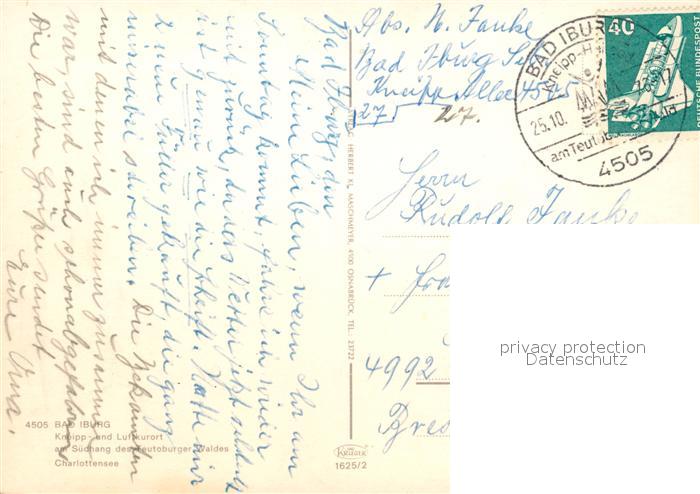 Bad Iburg, den
Meine Lieben, wenn Ihr am
Sonntag kommt, fahre ich wieder
mit zurück, da das Wetter jetzt schlecht
ist genau wie die Schrift. Hatte mir
2 neue Füller gekauft, die ganz
miserabel schreiben. Die Bekannten
mit denen ich immer zusammen
war, sind auch schon abgefahren
Die besten Grüße sendet
Eure Oma.
4505 BAD IBURG
Kneipp- und Luftkurort
am Südhang des Teutoburger Waldes
Charlottensee
VERLAG HERBERT KL. MASCHMEYER, 4500 OSNABRÜCK, TEL.: 23722
KRÜGER
1625/2
Abs. M. Janke
Bad Iburg
Kneipp Allee 4505
27
BAD IBURG
Kneipp-H
25.10.
am Teutob
4505
40
DEUTSCHE BUNDESPOST
Herrn
Rudolf Janke
+ Fra
4992
privacy protection
Datenschutz